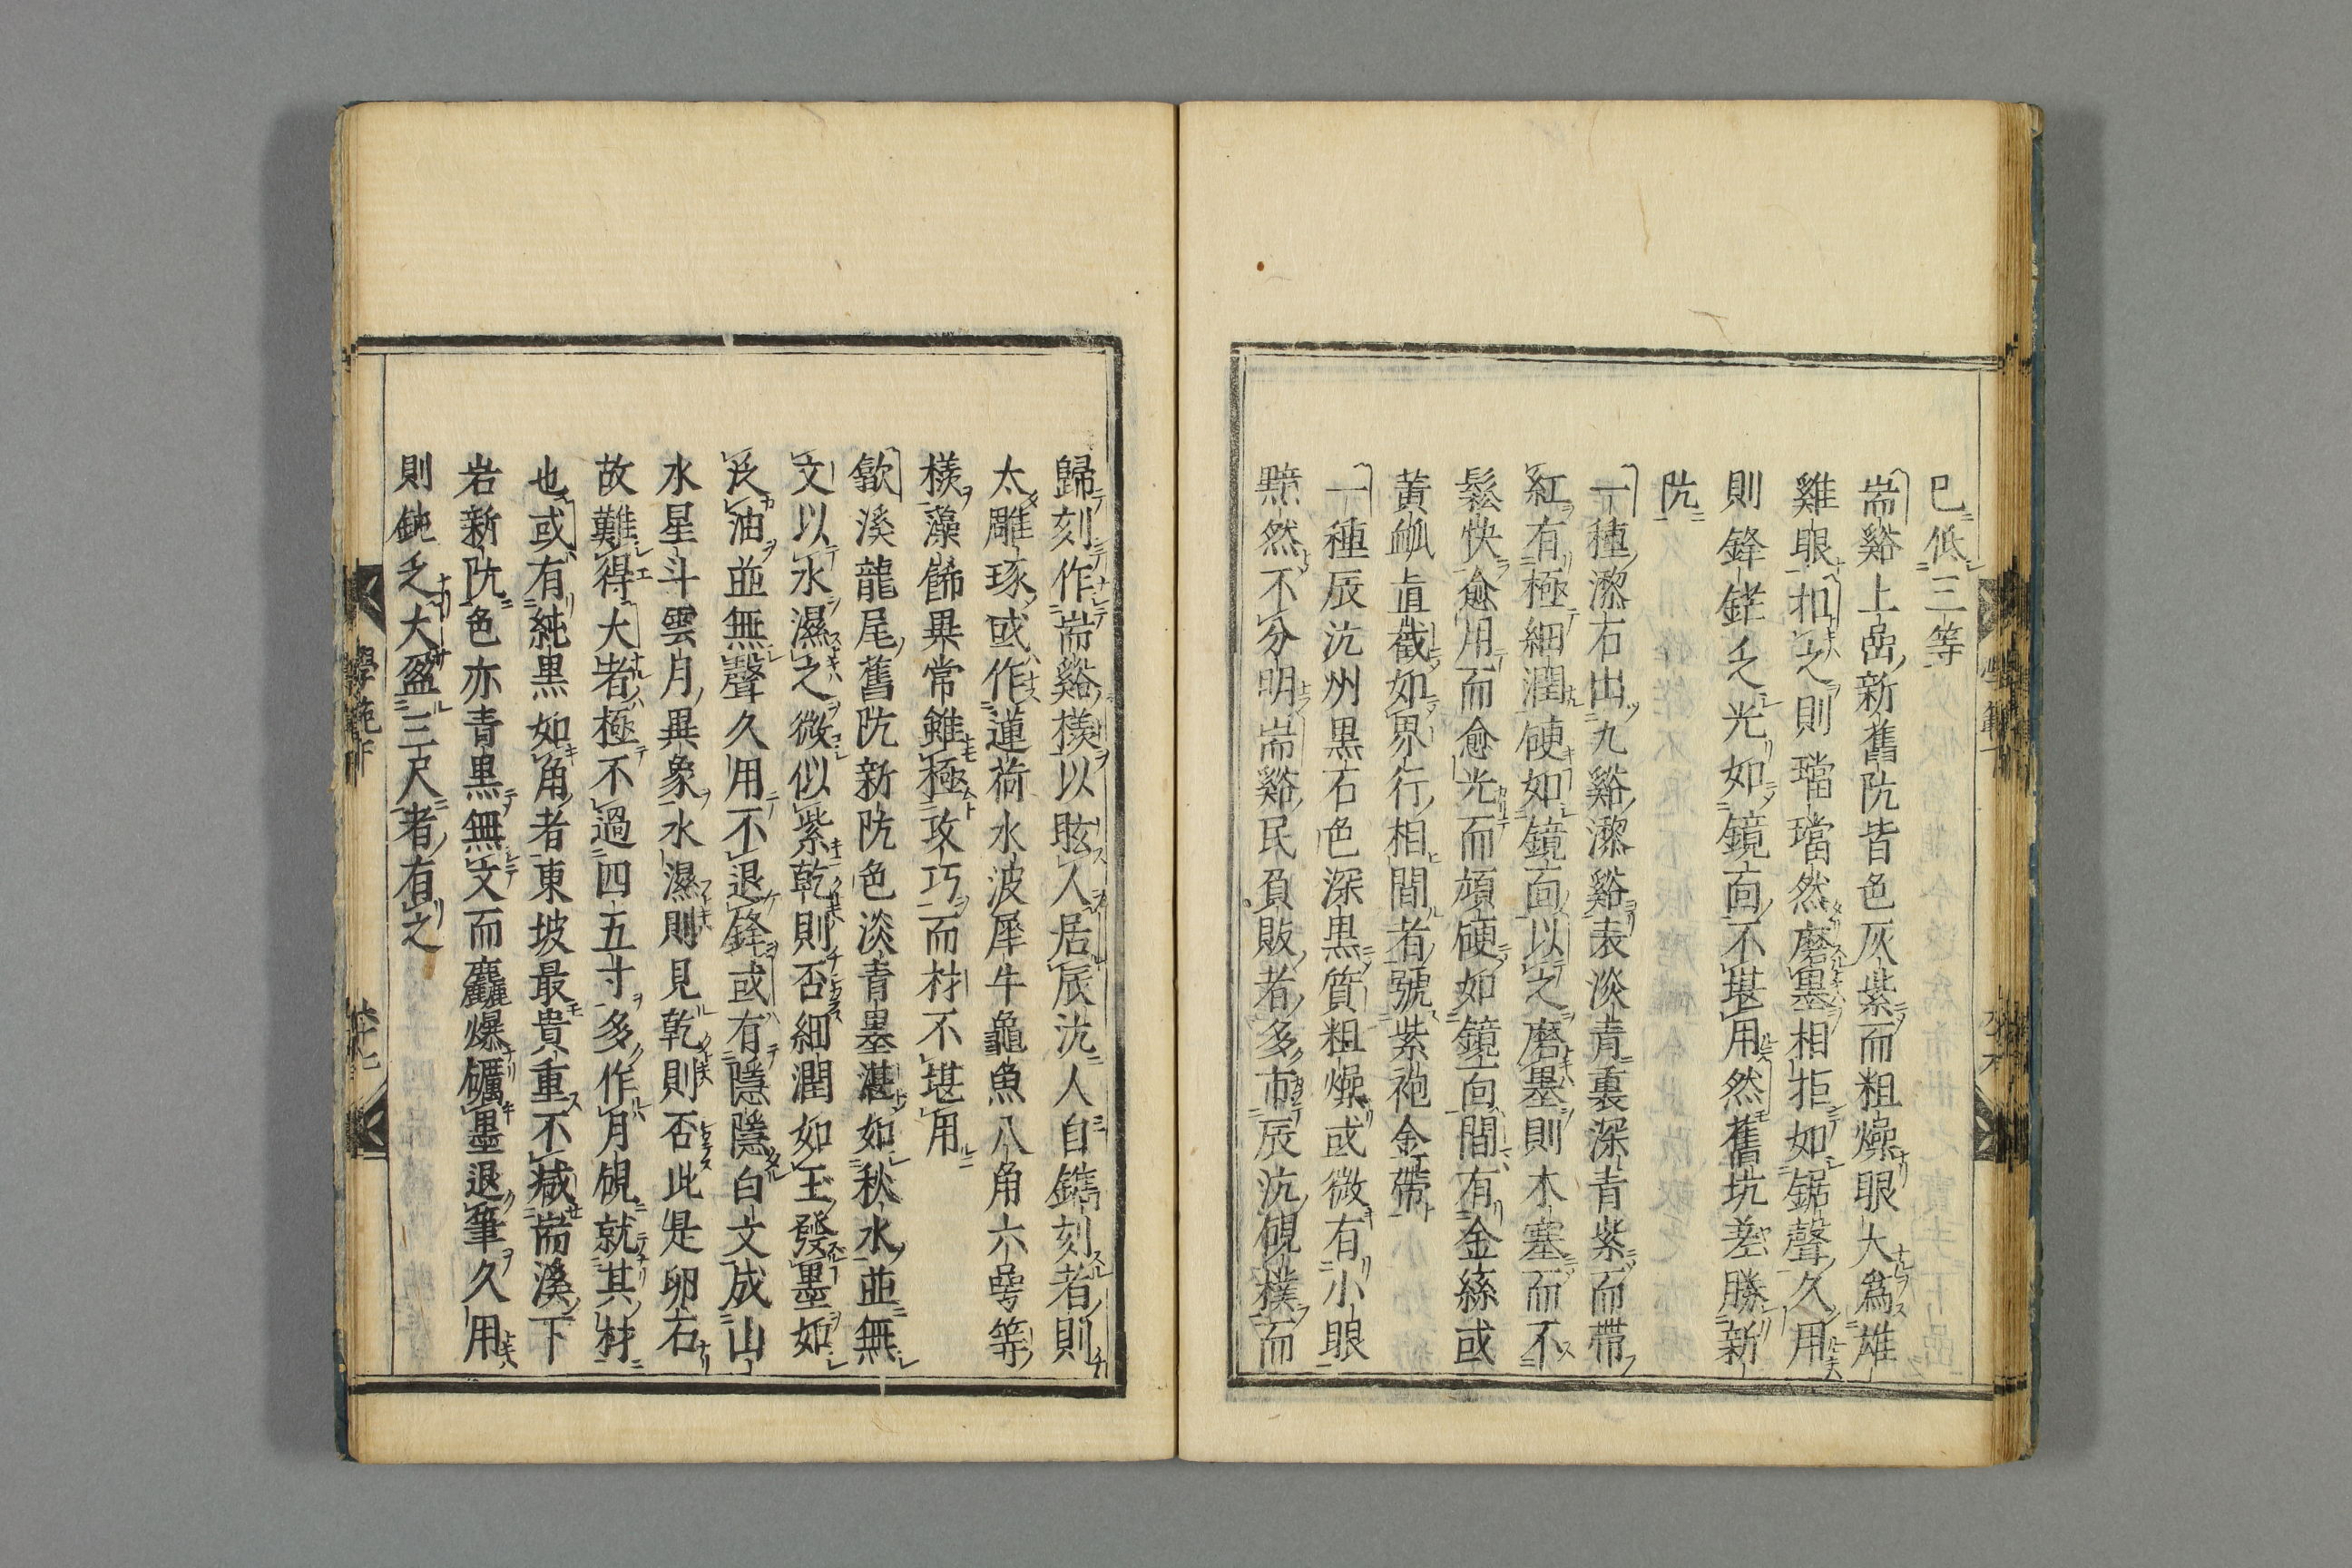 已低三等
耑谿上嵒新舊阬皆色灰紫而粗燥眼大爲雄
雞眼扣之則璫璫然磨墨相拒如鋸聲久用
則鋒鋩乏光如鏡面不堪用然舊坑差勝新
阬
一種潔石出九谿潔谿表淡青裏深青紫而帶
紅有極細潤硬如鏡面以之磨墨則木塞而不
鬆快愈用而愈光而頑硬如鏡面間有金絲或
黃衇直截如界行相間者號紫袍金帶
一種辰沅州黒石色深黒質粗燥或微有小眼
黯然不分明耑谿民負販者多市辰沅硯樸而
歸刻作耑谿樣以眩人居辰沅人自鐫刻者則
太雕琢或作蓮荷水波犀牛龜魚八角六㖾等
樣藻餙異常雖極攻巧而材不堪用
歙溪龍尾舊阬新阬色淡青墨湛如秋水並無
文以水濕之微似紫乾則否細潤如玉發墨如
泛油並無聲久用不退鋒或有隱隱白文成山
水星斗雲月異象水濕則見乾則否此是卵石
故難得大者極不過四五寸多作月硯就其材
也或有純黒如角者東坡最貴重不減耑溪下
岩新阬色亦青黒無文而麤爆礪墨退筆久用
則鈍乏大盈三尺者有之
學範下